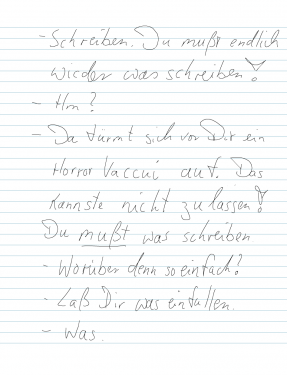 - Schreiben. Du mußt endlich
wieder was schreiben!
- Hm?
- Da türmt sich vor Dir ein
Horror Vaccui auf. Das
kannste nicht zulassen!
Du mußt was schreiben
- Worüber denn so einfach?
- Laß Dir was einfallen.
- Was.